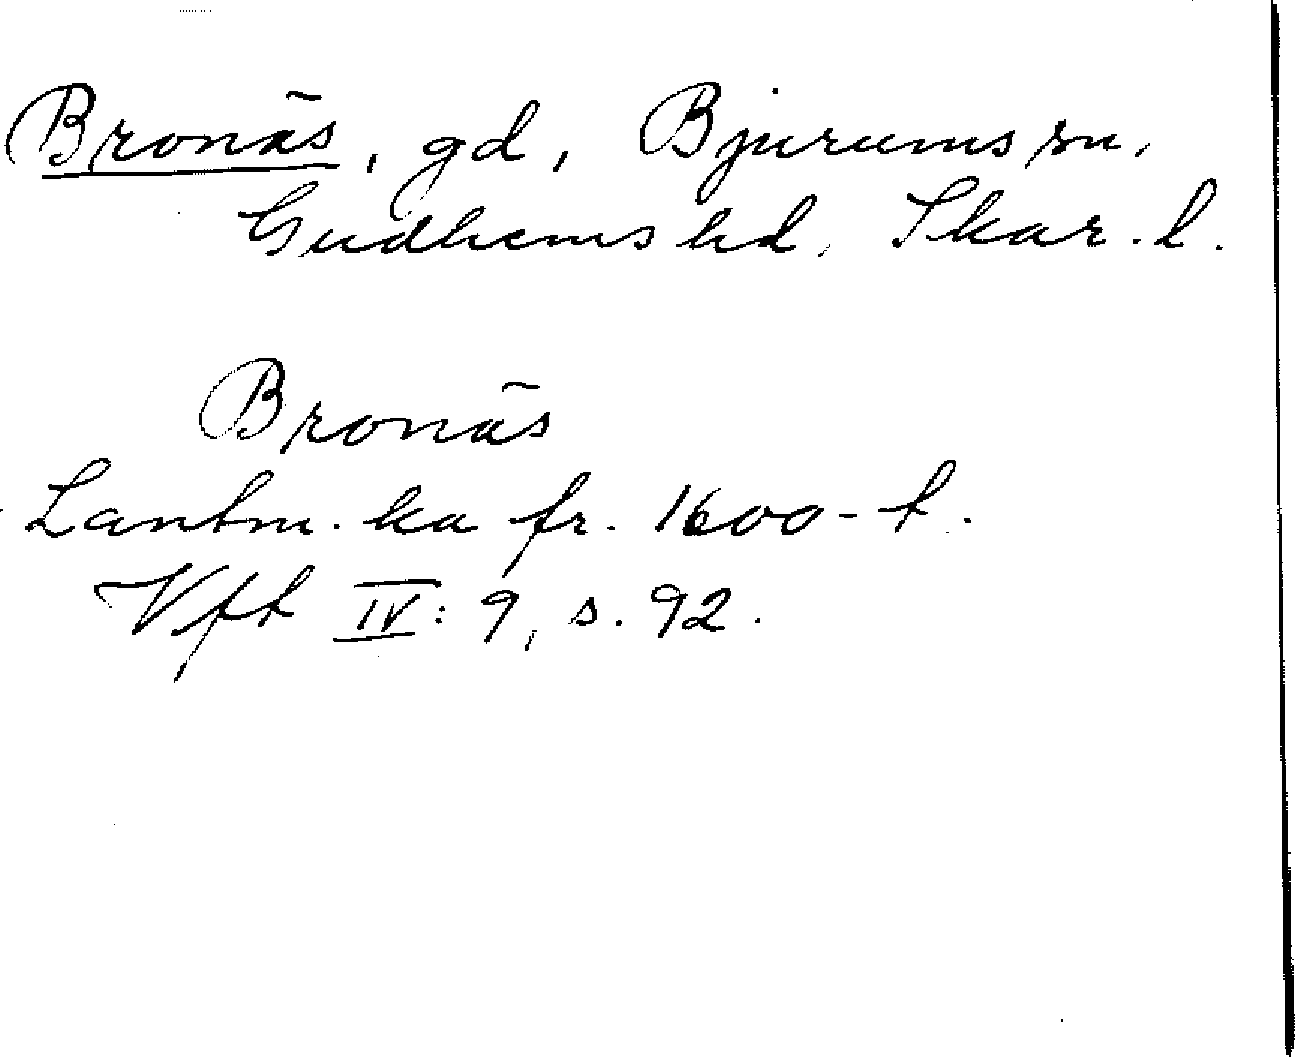 Bronäs, gd, Bjurums sn,
Gudhems hd, Skar. l.
Bronäs
Lantm. ka fr. 1600-t.
Vft IV: 9, s. 92.